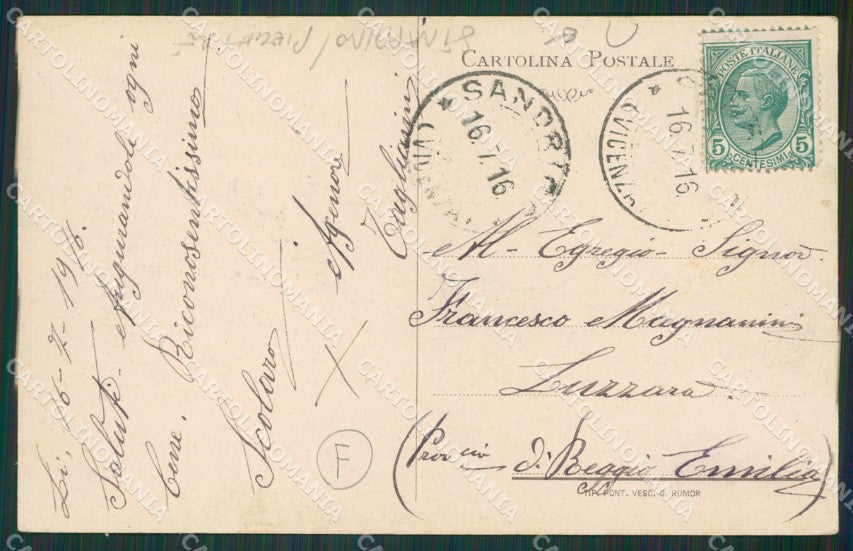 CARTOLINA POSTALE
POSTE ITALIANE
5 CENTESIMI 5
SANDRI
16.7.16
(VICENZA)
16.7.16
(VICENZA)
Al Egregio Signor
Francesco Magnanini
Luzzara.
(Provcia di Reggio Emilia)
TIP. PONT. VESC. G. RUMOR
Li, 16-7-1916.
Saluti augurandoli ogni
bene. Riconosentissimo
Scolaro
Agenore
Tagliavini
F
CARTOLINOMANIA